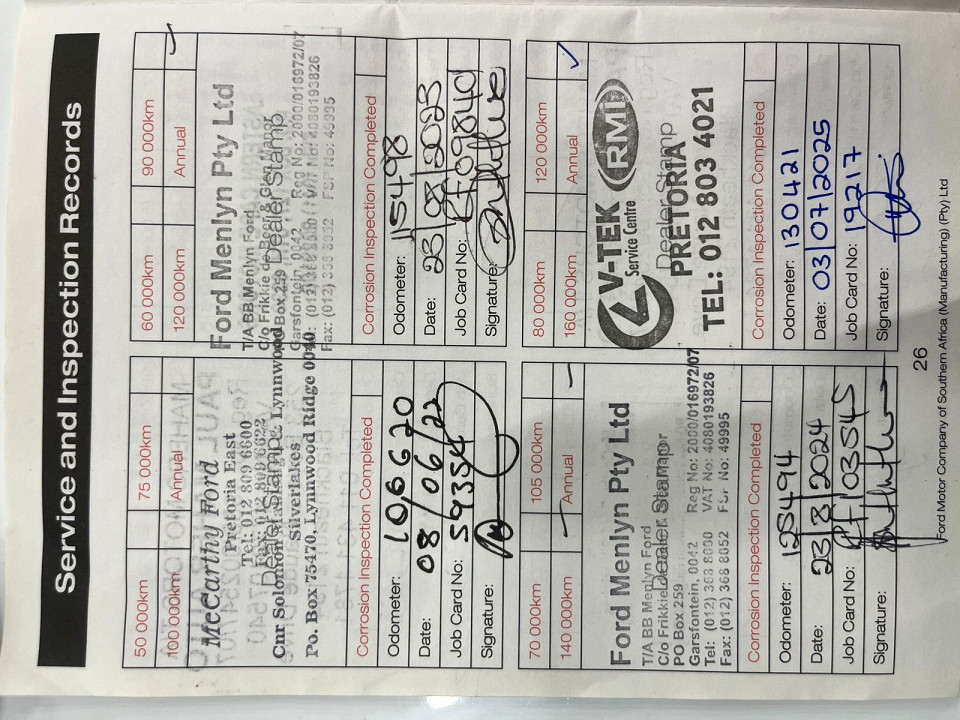 Service and Inspection Records
50 000km
75 000km
100 000km
Annual
McCarthy Ford
Pretoria East
Tel: 012 809 6600
Fax: 012 809 6622
Dealer Stamp
Cnr Solomon & Lynnwood
Silverlakes
Po. Box 75470, Lynnwood Ridge 0040
Corrosion Inspection Completed
Odometer: 106620
Date: 08/06/22
Job Card No: 559354
Signature:
60 000km
90 000km
120 000km
Annual
Ford Menlyn Pty Ltd
T/A BB Menlyn Ford
C/o Frikkie de Beer & Glen Manor
PO Box 259 Dealer Stamp
Garsfontein, 0042 Reg No: 2000/016972/07
VAT No: 4080193826
Fax: (012) 368 8052 FSP No: 49995
Corrosion Inspection Completed
Odometer: 115498
Date: 23/08/2023
Job Card No:
Signature:
70 000km
105 000km
140 000km
Annual
Ford Menlyn Pty Ltd
T/A BB Menlyn Ford
C/o Frikkie Dealer Stamp
PO Box 259
Garsfontein, 0042 Reg No: 2000/016972/07
Tel: (012) 368 8000 VAT No: 4080193826
Fax: (012) 368 8052 FSP No: 49995
Corrosion Inspection Completed
Odometer: 125494
Date: 23/8/2024
Job Card No:
Signature:
80 000km
120 000km
160 000km
Annual ✓
V-TEK RMI
Service Centre
Dealer Stamp
PRETORIA
TEL: 012 803 4021
Corrosion Inspection Completed
Odometer: 130421
Date: 03/07/2025
Job Card No: 19217
Signature:
26
Ford Motor Company of Southern Africa (Manufacturing) (Pty) Ltd